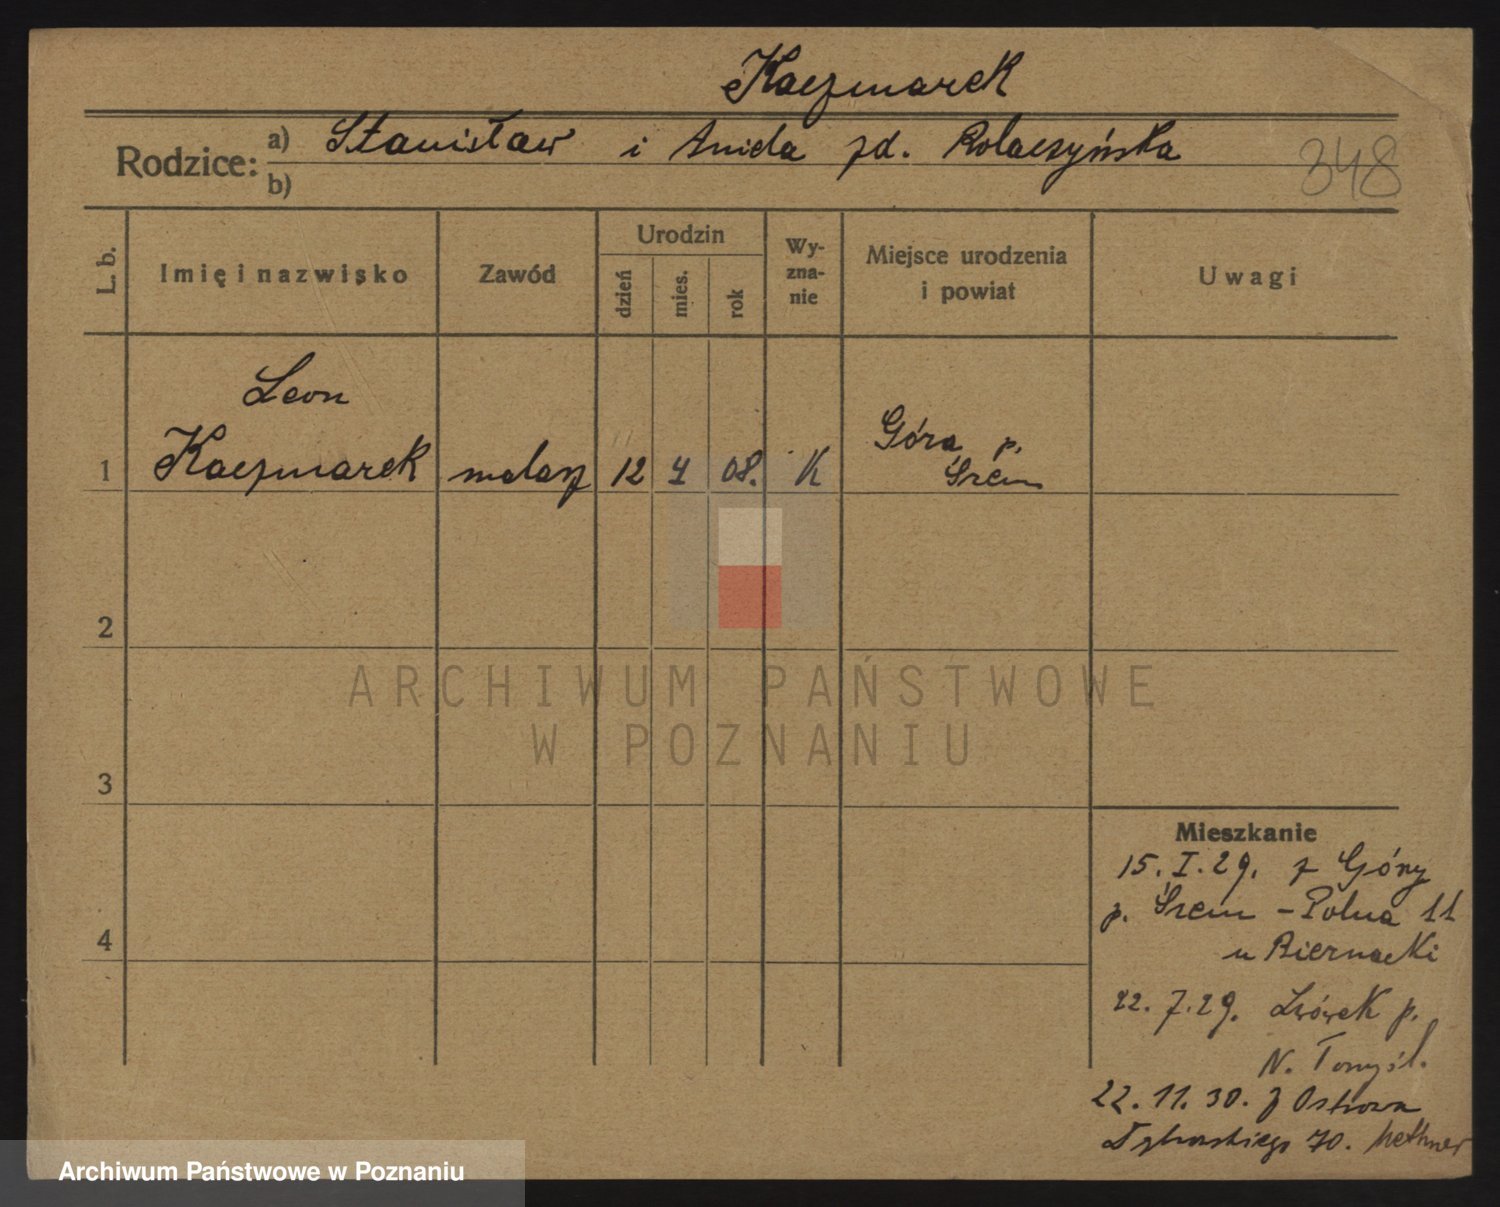 Kaczmarek
Rodzice: a) Stanisław i Aniela zd. Kolaczyńska
b)
348
L. b.
Imię i nazwisko
Zawód
Urodzin
dzień
mies.
rok
Wy-
zna-
nie
Miejsce urodzenia
i powiat
Uwagi
1
Leon
Kaczmarek
malarz
12
4
08.
K
Góra p.
Śrem
2
3
4
ARCHIWUM PAŃSTWOWE
W POZNANIU
Mieszkanie
15. I. 29. z Góry
p. Śrem - Polna 11
u Biernacki
22. 7. 29. Lwówek p.
N. Tomyśl.
22. 11. 30. z Ostrowa
70.
Archiwum Państwowe w Poznaniu